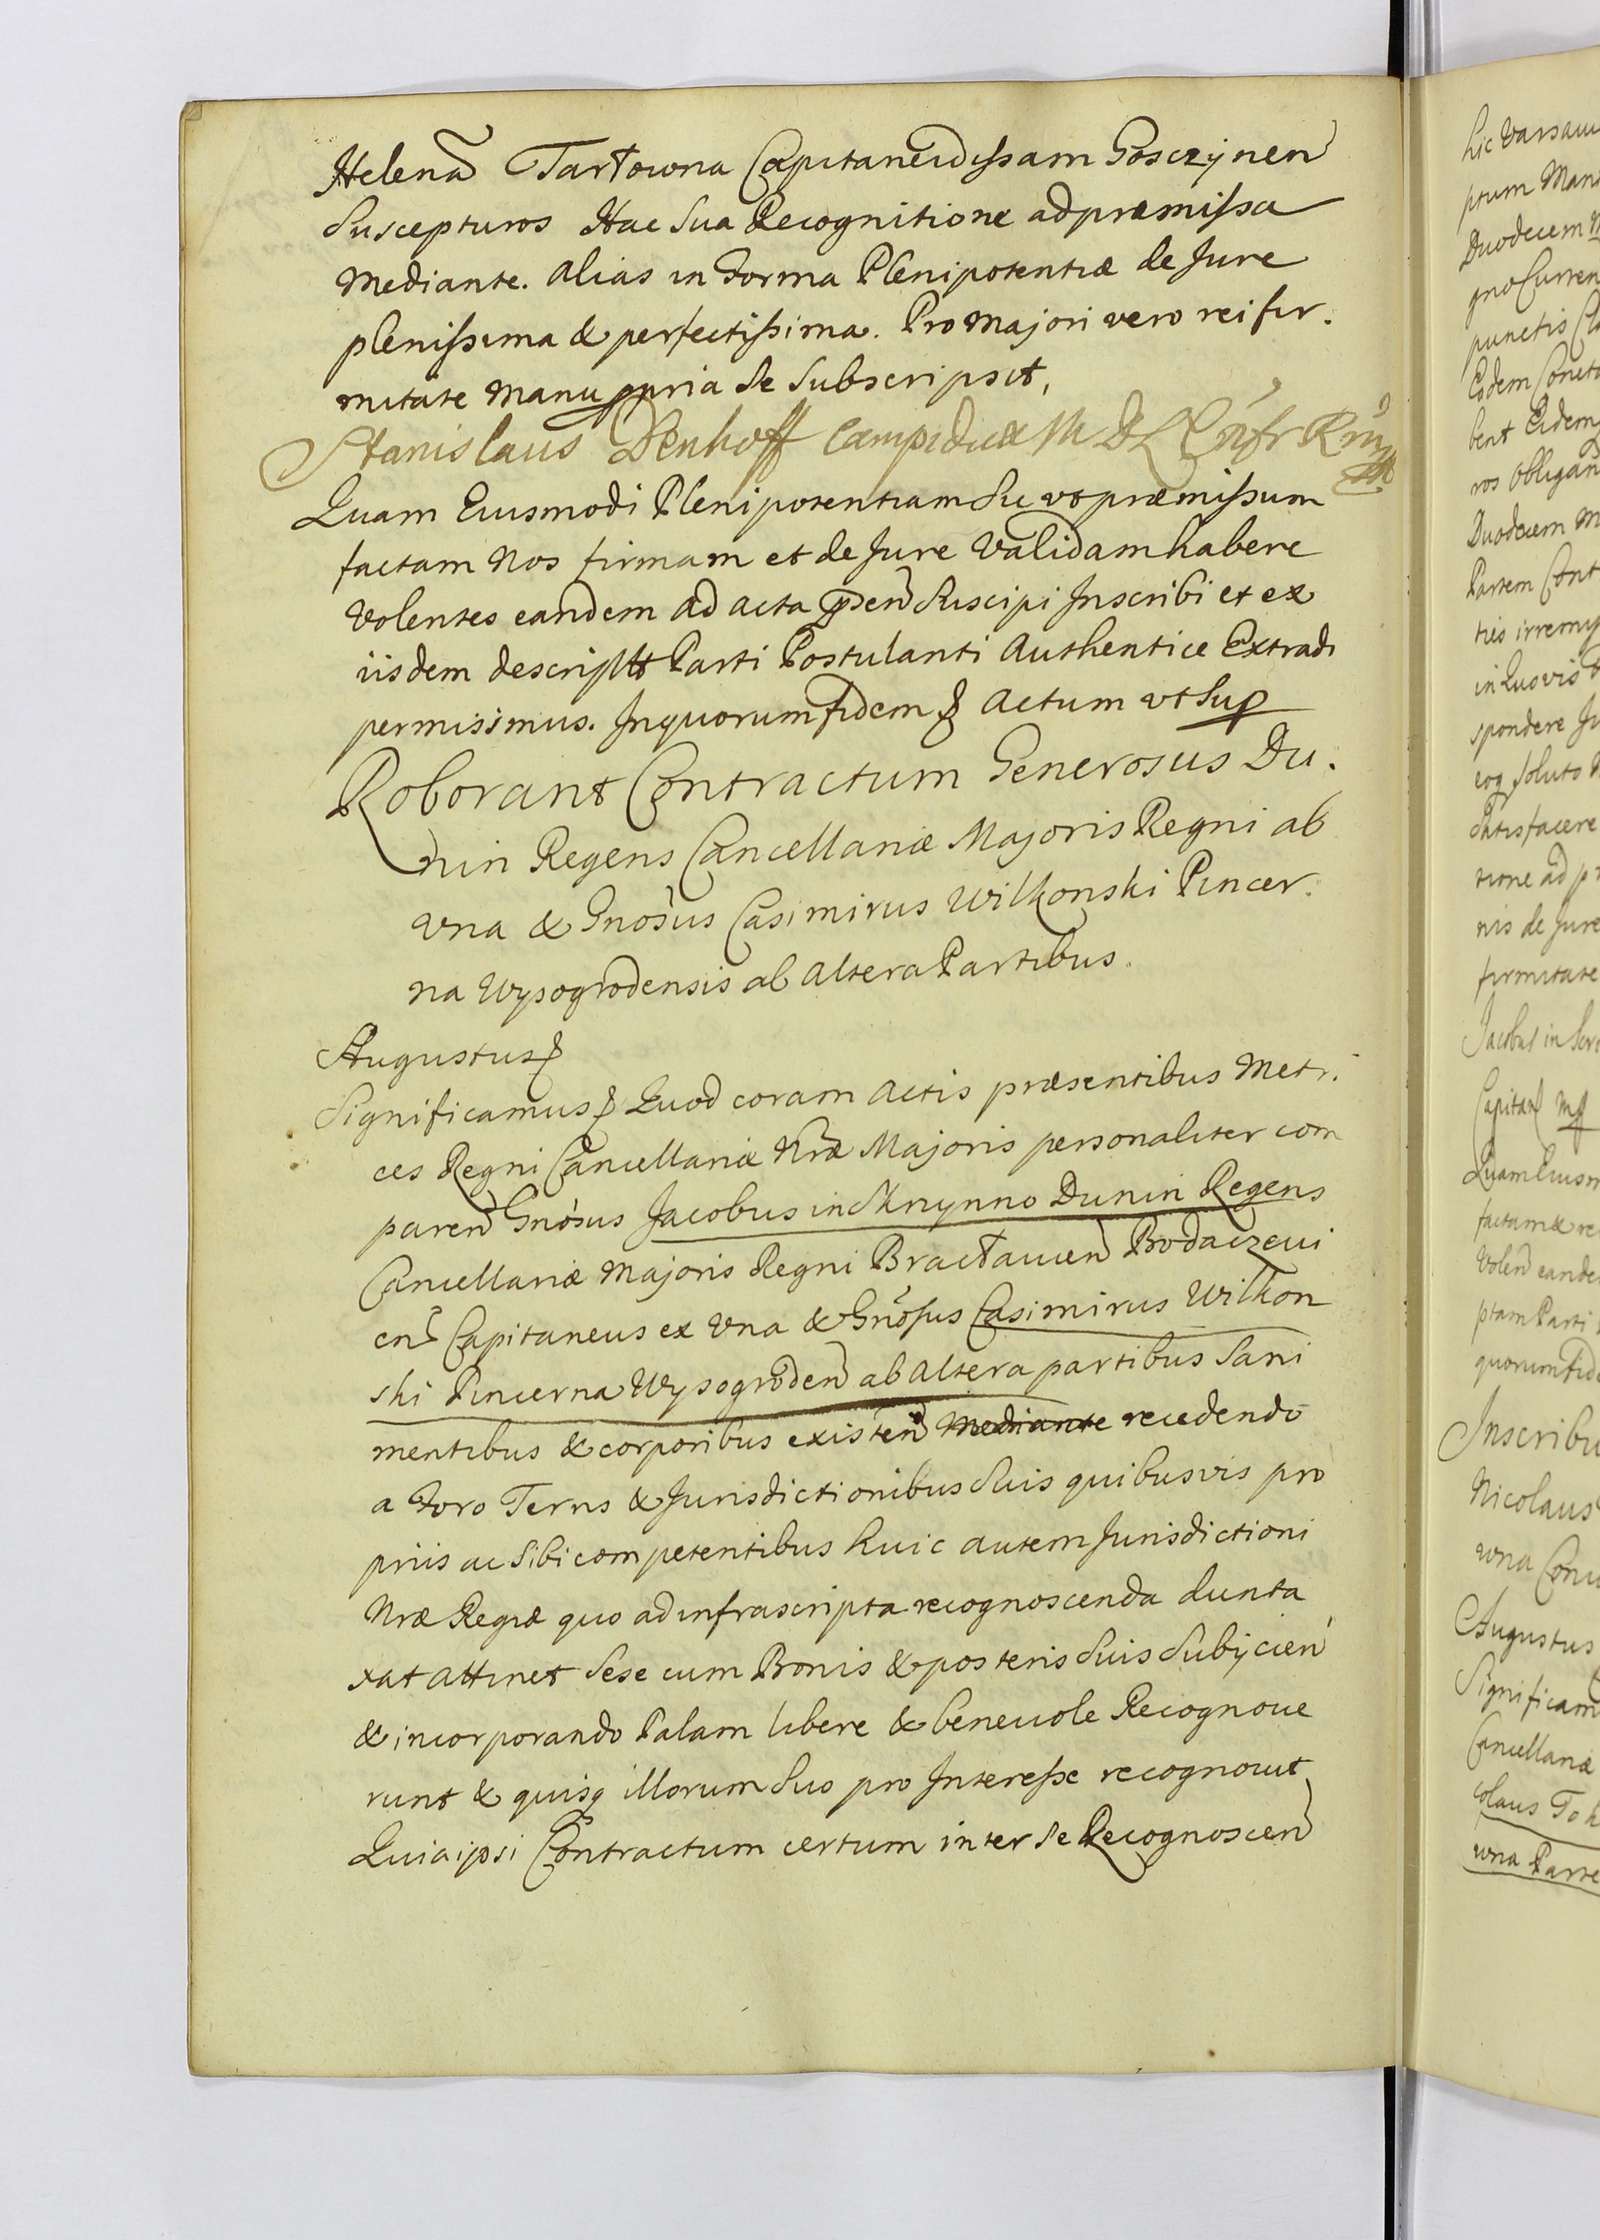 Helenã Tarłowna Capitaneidissam Gosczÿnen
Suscepturos Hac Sua Recognitione ad præmissa
Mediante. Alias in Forma Plenipotentiæ de Jure
plenissima & perfectissima. Pro Majori vero rei fir.
mitate Manu ppria Se Subscripsit,
Stanislaus Denhoff Campidux M D L
Quam Eiusmodi Plenipotentiam Sic vt præmissum
factam Nos firmam et de Jure Validam habere
Volentes eandem ad Acta pñn Suscipi Inscribi et ex
iisdem descriptt Parti Postulanti Authentice Extradi
permisimus. In quorum fidem & Actum vt Sup
Roborant Contractum Generosus Du.
nin Regens Cancellariæ Majoris Regni ab
vna & Gnosus Casimirus Wilkonski Pincer.
na Wysogrodensis ab Altera Partibus.
Augustus &
Significamus & Quod coram Actis præsentibus Metr.
ces Regni Cancellariæ Nræ Majoris personaliter com
paren Gnosus Jacobus in Skrzynno Dunin Regens
Cancellariæ Majoris Regni Bracłauien Bodaczeui
en Capitaneus ex Vna & Gnosus Casimirus Wilkon
ski Pincerna Wysogroden ab Altera partibus Sani
mentibus & corporibus existen Mediante recedendo
a Foro Terris & Jurisdictionibus Suis quibusvis pro
priis ac Sibi competentibus huic autem Jurisdictioni
Nræ Regiæ quo ad infrascripta recognoscenda dunta
xat attinet Sese cum Bonis & posteris Suis Subÿcien
& incorporando Palam libere & beneuole Recognoue
runt & quisq illorum Suo pro Interesse recognouit
Quia ipsi Contractum certum inter Se Recognoscen
hic Varsaui
ptum Man
Duodecem
gno Curren
punctis
Eidem
bent Eidem
ros Obligan
Duodecem M
Partem Cont
in Quovis
spondere Ju
eoq soluto
Satisfacere
tione ad p
nis de Jure
firmitate
Jacobus in
Capitan
Quam Eiusm
factam & re
Volen eande
ptam Parti
quorum fid
Inscribu
Nicolaus
vna
Augustus
Significam
Cancellariæ
colaus
vna Parte